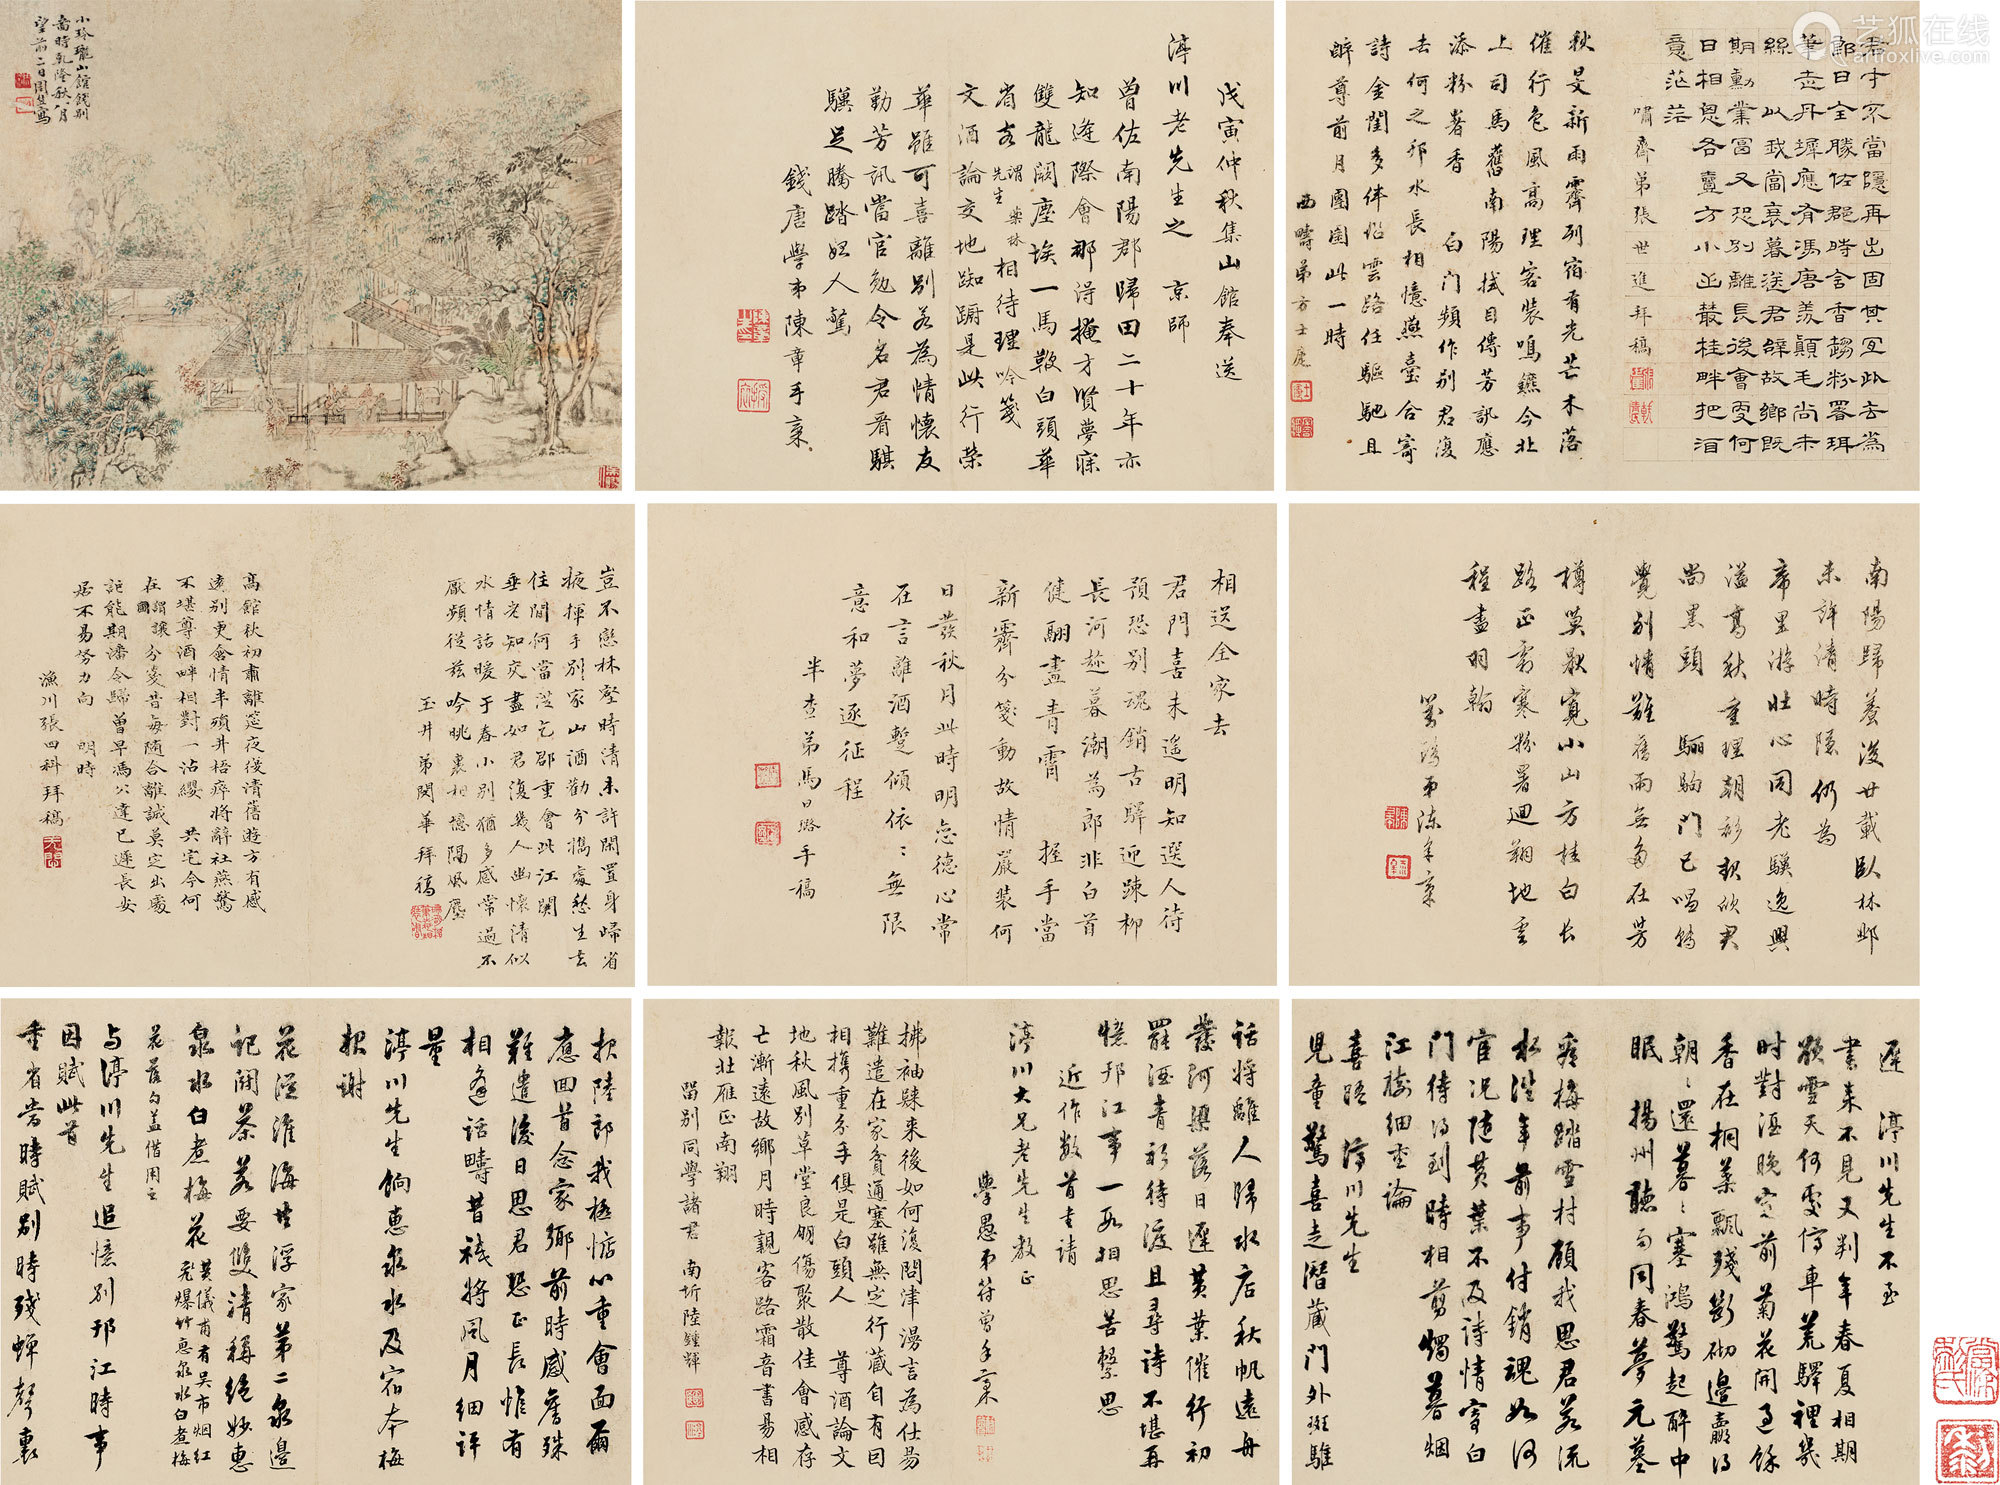 小玲瓏山館餞別
啚時乾隆秋八月
望前二日周生寫
艺狐在线
artfoxlive.com
戊寅仲秋集山館奉送
渟川老先生之 京師
曾佐南陽郡歸田二十年亦
知逢際會那得掩才賢夢寐
雙龍闕塵埃一馬鞍白頭華
省客謂藥林先生相待理吟箋
文酒論交地踟躕是此行榮
華雖可喜離別若為情懷友
勤芳訊當官勉令名君看騏
驥足騰踏始人驚
錢唐學弟陳章手稾
秋旻新雨霽列宿有光芒木落
催行色風高理客裝鳴鑣今北
上司馬舊南陽拭目傳芳訊應
添粉署香 白门頻作別君復
去何之邗水長相憶燕臺合寄
詩金閨多伴侶雲路任驅馳且
醉尊前月團圞此一時
西疇弟方士庶
君才不當隱再出固其宜此去為
郎日全勝佐郡時含香趨粉署珥
筆赤丹墀應有馮唐羡顛毛尚未
絲 以我當衰暮送君辭故鄉既
期勳業冨又恐別離長後會更何
日相思各壹方小山叢桂畔把酒
意茫茫
嘯齋弟張世進拜稿
豈不戀林壑時清未許閑置身歸省
掖揮手別家山酒勸分攜處愁生去
住間何當從乞郡重會此江關
垂老知交盡如君復幾人幽懷清似
水情話暖于春小別猶多感常過不
厭頻從兹吟眺裏相憶隔風塵
玉井弟閔華拜稿
高館秋初肅離筵夜復清舊遊方有感
遠別更含情半殞井梧瘁將辭社燕驚
不堪尊酒畔相對一沾纓 共宅今何
在謂讓國分箋昔每随合離誠莫定出處
詎能期潘令歸曾早馮公達已遲長安
居不易努力向 明時
漁川張四科拜稿
相送全家去
君門喜未遙明知選人待
預恐別魂銷古驛迎踈柳
長河趂暮潮為郎非白首
健翮盡青霄 握手當
新霽分箋動故情嚴裝何
日發秋月此時明忘德心常
在言離酒蹔傾依依無限
意和夢逐征程
半查弟馬曰璐手稿
南陽歸養後廿載卧林邱
未許清時隱仍為
帝里游壮心同老驥逸興
溢高秋重理朝衫欵欣君
尚黑頭 驪駒門已唱轉
覺別情難舊雨無多在芳
樽莫歇寬小山方桂白长
路正雲寒粉署迴翔地雲
程盡羽翰
遲 渟川先生不至
書来不見又判年春夏相期
欲雪天何處停車荒驛裡幾
時對酒晚窓前菊花開過餘
香在桐葉飄殘斷砌邊贏得
朝朝還暮暮塞鴻驚起醉中
眠 揚州聽雨同春夢元墓
尋梅踏雪村顧我思君若流
水從年前事付銷魂如何
官况随黄葉不及詩情寄白
門待得到時相剪燭暮烟
江樹細重論
喜晤 渟川先生
兒童驚喜走潛藏門外斑騅
話将離人歸水店秋帆遠舟
發河梁落日遲黄葉催行初
罷酒青衫待渡且尋詩不堪再
憶邗江事一段相思苦繫思
近作數首書請
渟川大兄老先生教正
學愚弟符曾手稾
拂袖歸来後如何復問津漫言為仕易
難遣在家貧通塞雖無定行藏自有因
相攜重分手俱是白頭人 尊酒論文
地秋風别草堂良朋傷聚散佳會感存
亡漸遠故鄉月時親客路霜音書易相
報北雁正南翔
留别同學諸君 南圻陸鍾輝
报陸郎我極惦心重會面爾
應回首念家鄉前時感舊殊
難遣後日思君恐正長惟有
相逢話疇昔祗将風月細评
量
渟川先生餉惠泉水及宿本梅
报谢
花淫淮海共浮家第二泉邊
記鬪茶若要雙清稱绝妙惠
泉水白煮梅花黄儀甫有吴市烟红元爆竹惠泉水白煮梅
花落句盖借用之
与渟川先生追憶别邗江時事
因賦此首
重省当時賦别時殘蝉聲裏